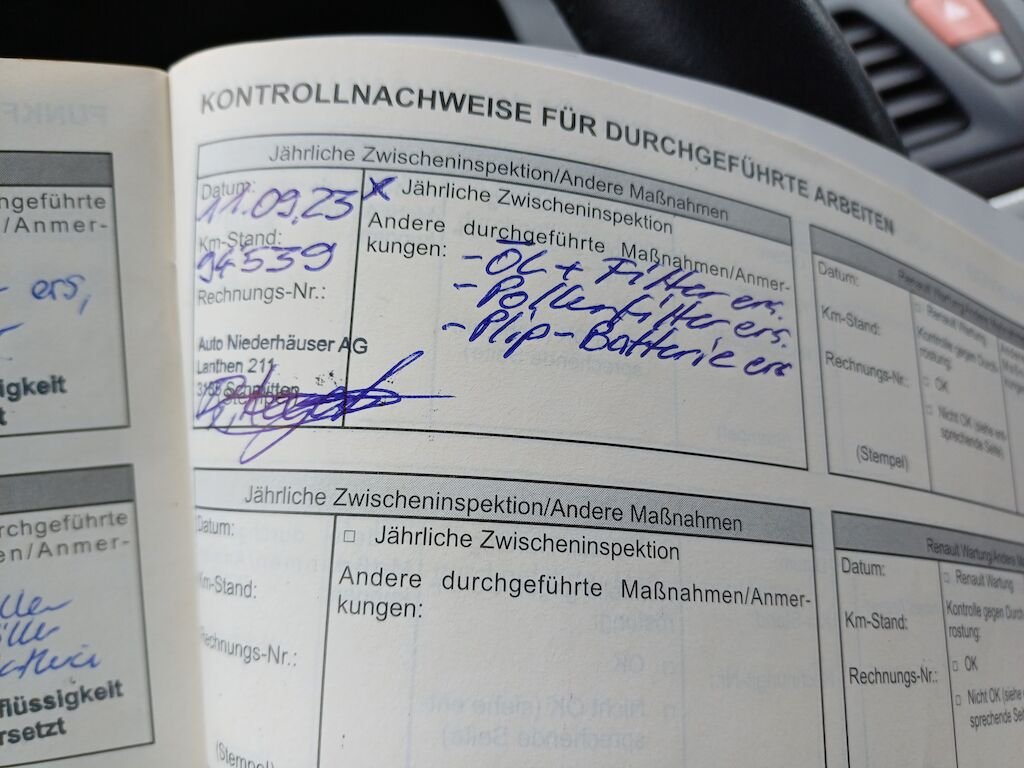 KONTROLLNACHWEISE FÜR DURCHGEFÜHRTE ARBEITEN
Jährliche Zwischeninspektion/Andere Maßnahmen
Datum:
11.09.23
Km-Stand:
94539
Rechnungs-Nr.:
Auto Niederhäuser AG
Lanthen 211
Schmitten
x Jährliche Zwischeninspektion
Andere durchgeführte Maßnahmen/Anmer-
kungen:
- ÖL + Filter ers.
- Pollenfilter ers.
- Plip-Batterie ers
Renault Wartung/Andere
Datum:
Km-Stand:
Rechnungs-Nr.:
(Stempel)
□ Renault Wartung
Kontrolle gegen Durch
rostung:
□ OK
□ Nicht OK (siehe ent-
sprechende Seite)
Jährliche Zwischeninspektion/Andere Maßnahmen
Datum:
Km-Stand:
Rechnungs-Nr.:
(Stempel)
□ Jährliche Zwischeninspektion
Andere durchgeführte Maßnahmen/Anmer-
kungen:
Renault Wartung/Andere M
Datum:
Km-Stand:
Rechnungs-Nr.:
□ Renault Wartung
Kontrolle gegen Durch
rostung:
□ OK
□ Nicht OK (siehe e
sprechende Seite)
hgeführte
/Anmer-
ers,
igkeit
t
urchgeführte
en/Anmer-
flüssigkeit
rsetzt